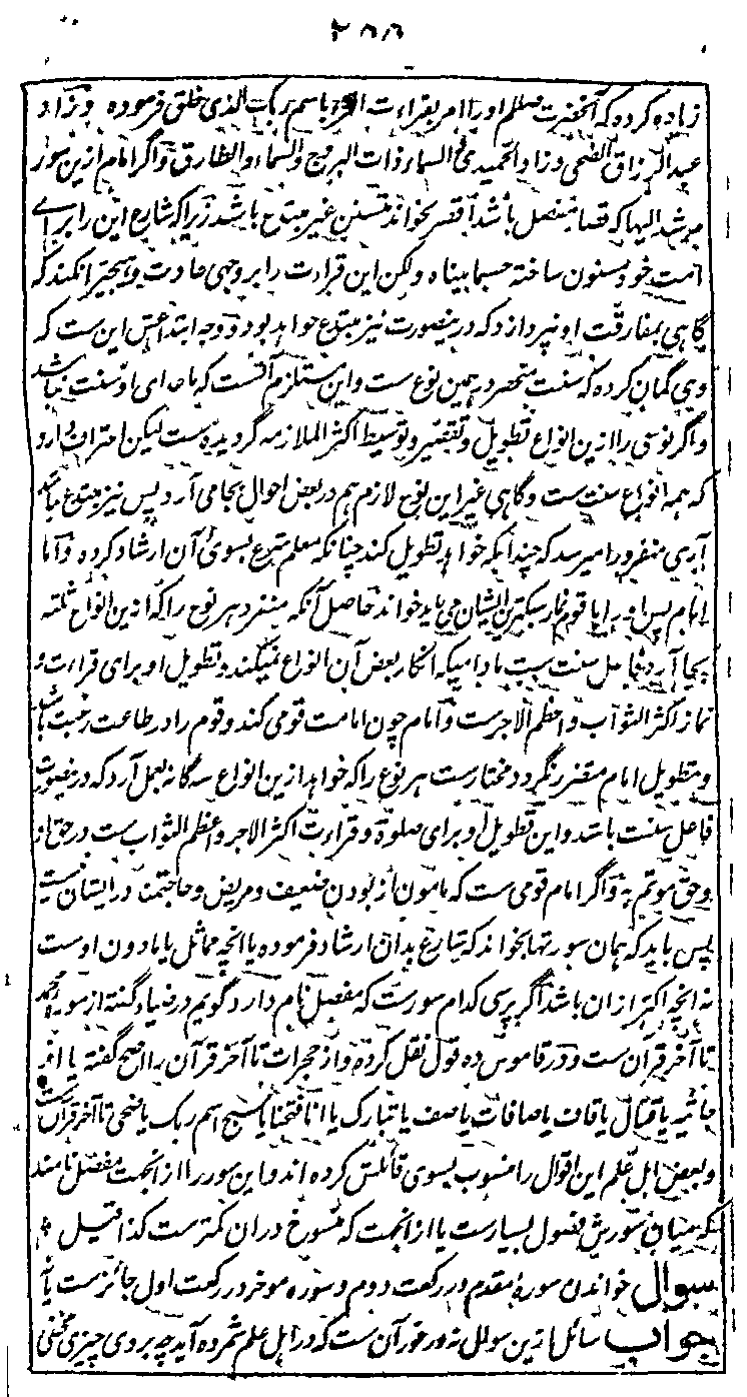 ۲۵۵
زاده کرده که آنحضرت صلعم او را امر بقراءت اقرا باسم ربک الذی خلق فرموده وزاد
عبدالرزاق الضحی وزاد الحمیدی فی السماء ذات البروج والسماء والطارق و اگر امام ازین سور
مرشد الیها که قصار مفصل باشد اقصر بخواند متسنن غیر مبتدع باشد زیرا که شارع این را برای
امت خود مسنون ساخته حسبما بیناه ولکن این قراءت را بر وجهی عادت و هجیرا نکند که
گاهی بمفارقت او نپردازد که درینصورت نیز مبتدع خواهد بود و وجه ابتداعش این ست که
وی گمان کرده که سنت منحصر در همین نوع ست و این مستلزم آنست که ماعدای او سنت نباشد
و اگر نوعی را ازین انواع تطویل و تقصیر و توسیط اکثر الملازمه گردیده ست لیکن اعتراف دارد
که همه انواع سنت ست و گاهی غیر این نوع لازم هم در بعض احوال بجامی آرد پس نیز مبتدع باشد
آری منفرد را میرسد که چندانکه خواهد تطویل کند چنانکه معلم شرع بسوی آن ارشاد کرده و اما
امام پس او را با قوم نماز سبکترین ایشان می باید خواند حاصل آنکه منفرد هر نوع را که ازین انواع ثلثه
بجا آرد فاعل سنت ست مادامیکه انکار بعض آن انواع نمیکند و تطویل او برای قراءت و
نماز اکثر الثواب و اعظم الاجر ست و امام چون امامت قومی کند و قوم را در طاعت رغبت باشد
و بتطویل امام متضرر نگردد مختار ست هر نوع را که خواهد ازین انواع سه گانه بعمل آرد که درینصورت
فاعل سنت باشد و این تطویل او برای صلوة و قراءت اکثر الاجر و اعظم الثواب ست در حق او
و حق موتم به و اگر امام قومی ست که مامون از بودن ضعیف و مریض و حاجتمند در ایشان نیست
پس باید که همان سورتها بخواند که شارع بدان ارشاد فرموده یا انچه مماثل یا مادون اوست
نه انچه اکثر ازان باشد اگر پرسی کدام سورست که مفصل نام دارد گویم در ضیاء گفته از سوره محمد
تا آخر قرآن ست و در قاموس ده قول نقل کرده و از حجرات تا آخر قرآن را اصح گفته یا از
جاثیه یا قتال یا قاف یا صافات یا صف یا تبارک یا انا فتحنا یا سبح اسم ربک یا ضحی تا آخر قرآن ست
و بعض اهل علم این اقوال را منسوب بسوی قائلش کرده اند و این سور را ازانجهت مفصل نامند
که میان سورش فصول بسیارست یا ازانجهت که منسوخ دران کمترست کذا قیل
سوال خواندن سورهٔ مقدم در رکعت دوم و سوره موخر در رکعت اول جائز ست یا نه
جواب سائل ازین سوال نه در خور آن ست که در اهل علم شمرده آید چه بر وی چیزی مخفی